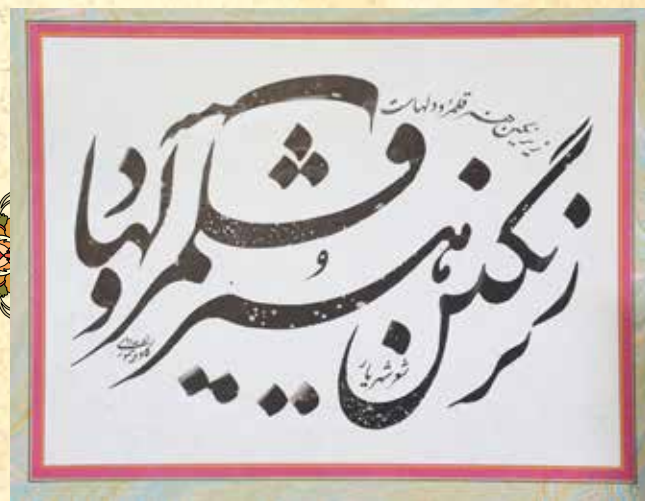 زیر نگین هنر قلمرو دلهاست
زیر نگین هنر قلمرو دلها
شعر شهریار